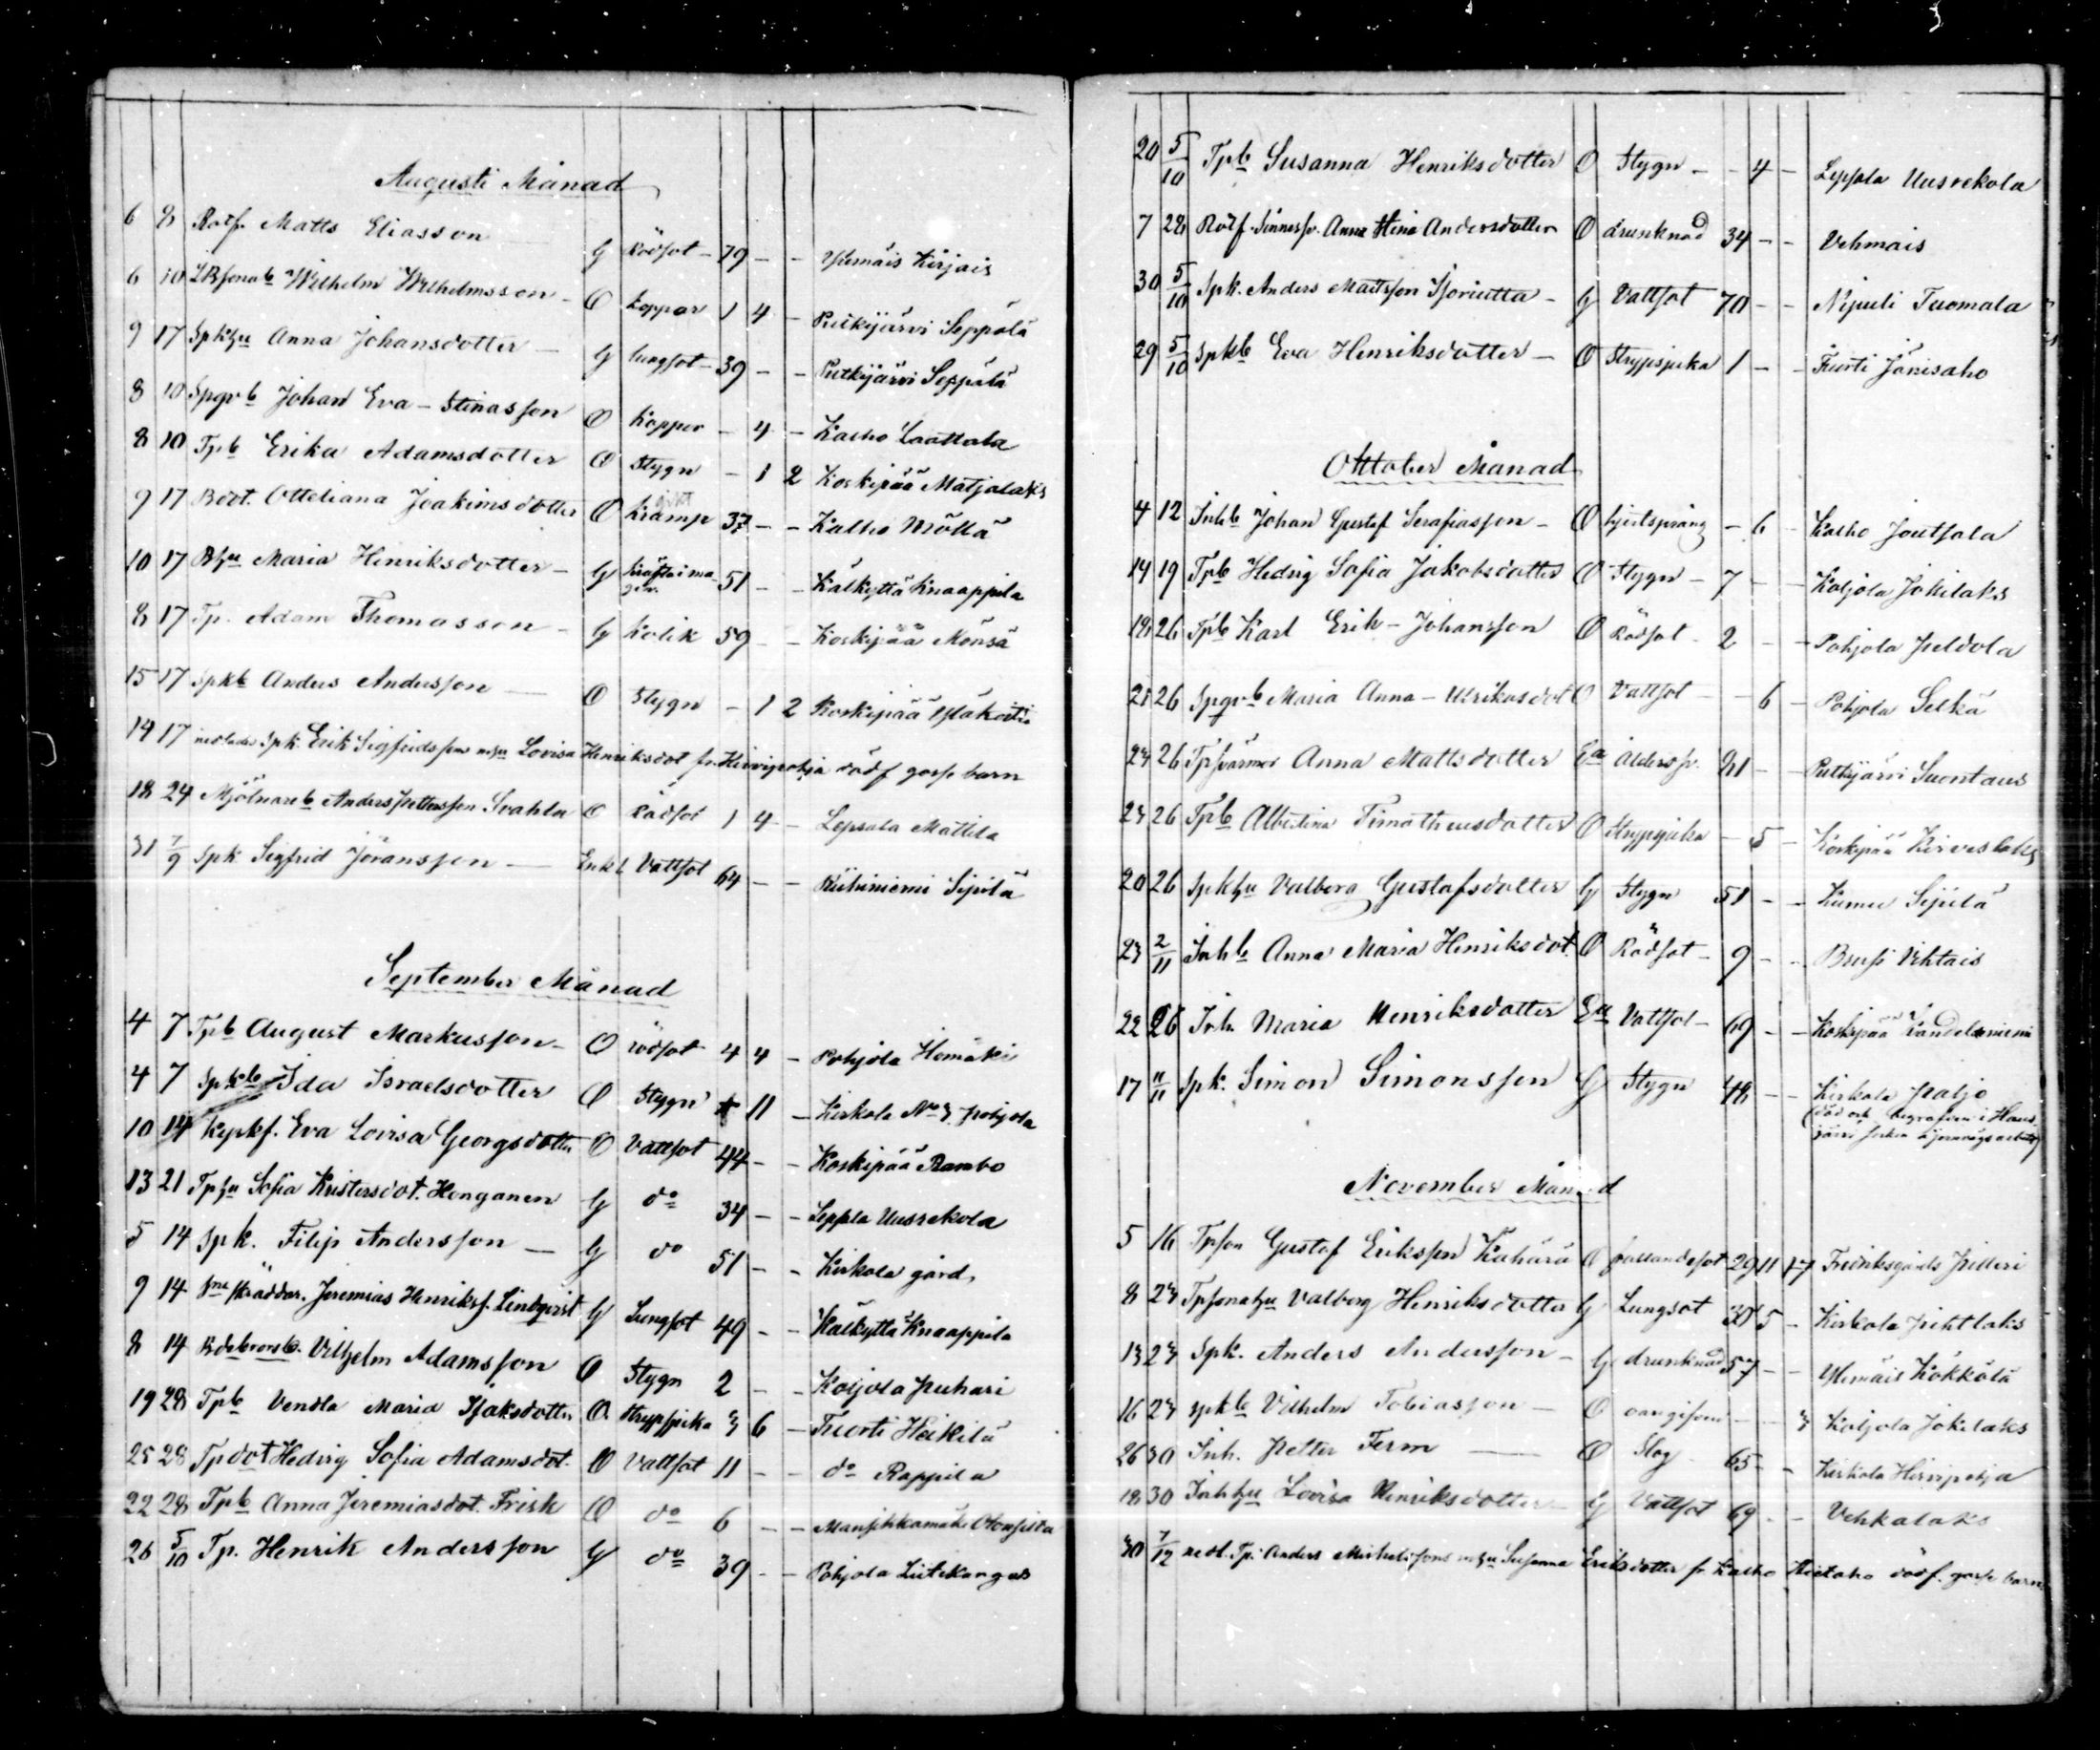 Augusti Månad
6 8 Rotf. Matts Eliasson G Rödsot 79 - - Ylemäis Kirjais
6 10 Wilhelm Wilhelmsson O koppor 1 4 - Putkijärvi Seppälä
9 17 Spkhu Anna Johansdotter G lungsot 39 - - Putkijärvi Seppälä
8 10 Spgvb Johan Eva-Stinasson O Koppor - 4 - Kalho Laattala
8 10 Tpb Erika Adamsdotter O Stygn - 1 2 Koskipää Matjalaks
9 17 Bdot. Otteliana Joakimsdotter O Kramp 37 - - Kalho Mölkä
10 17 Bhu Maria Henriksdotter G Kräfta i magen 51 - - Kalkyttä Knaappila
8 17 Tp. Adam Thomasson G Kolik 59 - - Koskipää Monsa
15 17 Spkb Anders Andersson O Stygn - 1 2 Koskipää
14 17 Spk. Erik Sigfridsson mhu Lovisa Henriksdot fr. Hirvipohja dödf. gosse barn
18 24 Mjölnareb Anders Pettersson Svahla O Rödsot 1 4 - Lepsala Mattila
31 7/9 Spk Sigfrid Jöransson Enkl Vattsot 64 - - Ruhiniemi Sipilä
September Månad
4 7 Tpb August Markusson O rödsot 4 4 - Pohjola Homäki
4 7 Spkb Ida Israelsdotter O Stygn 11 - Kirkola No 3 Pohjola
10 14 Eva Lovisa Georgsdotter O Vattsot 44 - - Koskipää Rambo
13 21 Tphu Sofia Kristersdot. Honganen G do 34 - - Leppla Uusrekola
5 14 Spk. Filip Andersson G do 51 - - Kirkola gård
9 14 skräddar. Jeremias Henriksf. Lindqvist G Lungsot 49 - - Kalkyttä Knaappila
8 14 Vilhelm Adamsson O Stygn 2 - - Koljola Puhari
19 28 Tpb Vendla Maria Isaksdotter O Strypsjuka 3 6 - Tuorti Heikilä
25 28 Tpdot Hedvig Sofia Adamsdot. O Vattsot 11 - - do Rappila
22 28 Tpb Anna Jeremiasdot. Frisk O do 6 - - Mansikkamäki
26 5/10 Tp. Henrik Andersson G do 39 - - Pohjola Liitekangas
20 5/10 Tpb Susanna Henriksdotter O Stygn - 4 - Lepsala Uusrekola
7 28 Rotf. Anna Stina Andersdotter O drunknad 34 - - Vehmais
30 5/10 Spk. Anders Mattsson G Vattsot 70 - - Nipuli Tuomala
29 5/10 Spkb Eva Henriksdotter O Strypsjuka 1 - - Tuorti Jänisaho
Oktober Månad
4 12 Inhb Johan Gustaf Serafiasson O hjertsprång - 6 - Kalho Joutsala
14 19 Tpb Hedvig Sofia Jakobsdotter O Stygn 7 - - Koljola Jokilaks
18 26 Tpb Karl Erik-Johansson O Rödsot 2 - - Pohjola Peldola
21 26 Spgvb Maria Anna-Ulrikasdot O Vattsot - 6 - Pohjola Selkä
23 26 Tpsvärmor Anna Mattsdotter Ea Åldersv. 81 - - Putkijärvi Suontaus
23 26 Tpb Albertina Timotheusdotter O Strypsjuka - 5 - Koskipää Kirveslaks
20 26 Spkhu Valborg Gustafsdotter G Stygn 51 - - Kumu Sipilä
23 2/11 Inhb Anna Maria Henriksdot. O Rödsot 9 - - Brusi Vehtais
22 26 Inh. Maria Henriksdotter Ea Vattsot 69 - - Koskipää Kandolaniemi
17 11/11 Spk. Simon Simonsson G Stygn 48 - - Kirkola Paljo
(död och begrafven i Haus-
järvi socken å jernvägsarbete)
November Månad
5 16 Tpson Gustaf Eriksson Kahära O fallandesot 29 11 17 Fredriksgårds Pilleri
8 23 Tpsonahu Valborg Henriksdotter G Lungsot 30 5 - Kirkola Pihtlaks
13 23 Spk. Anders Andersson G drunknad 57 - - Ylemäis Kokkola
16 23 Spkb Vilhelm Tobiasson O oangifven - - 3 Koljola Jokilaks
26 30 Inh. Petter Ferm O Slag 65 - - Kirkola Hirvipohja
18 30 Inhhu Lovisa Henriksdotter G Vattsot 69 - - Vehkalaks
30 7/12 Tp. Anders mhu Susanna Eriksdotter fr. Kalho dödf. gosse barn